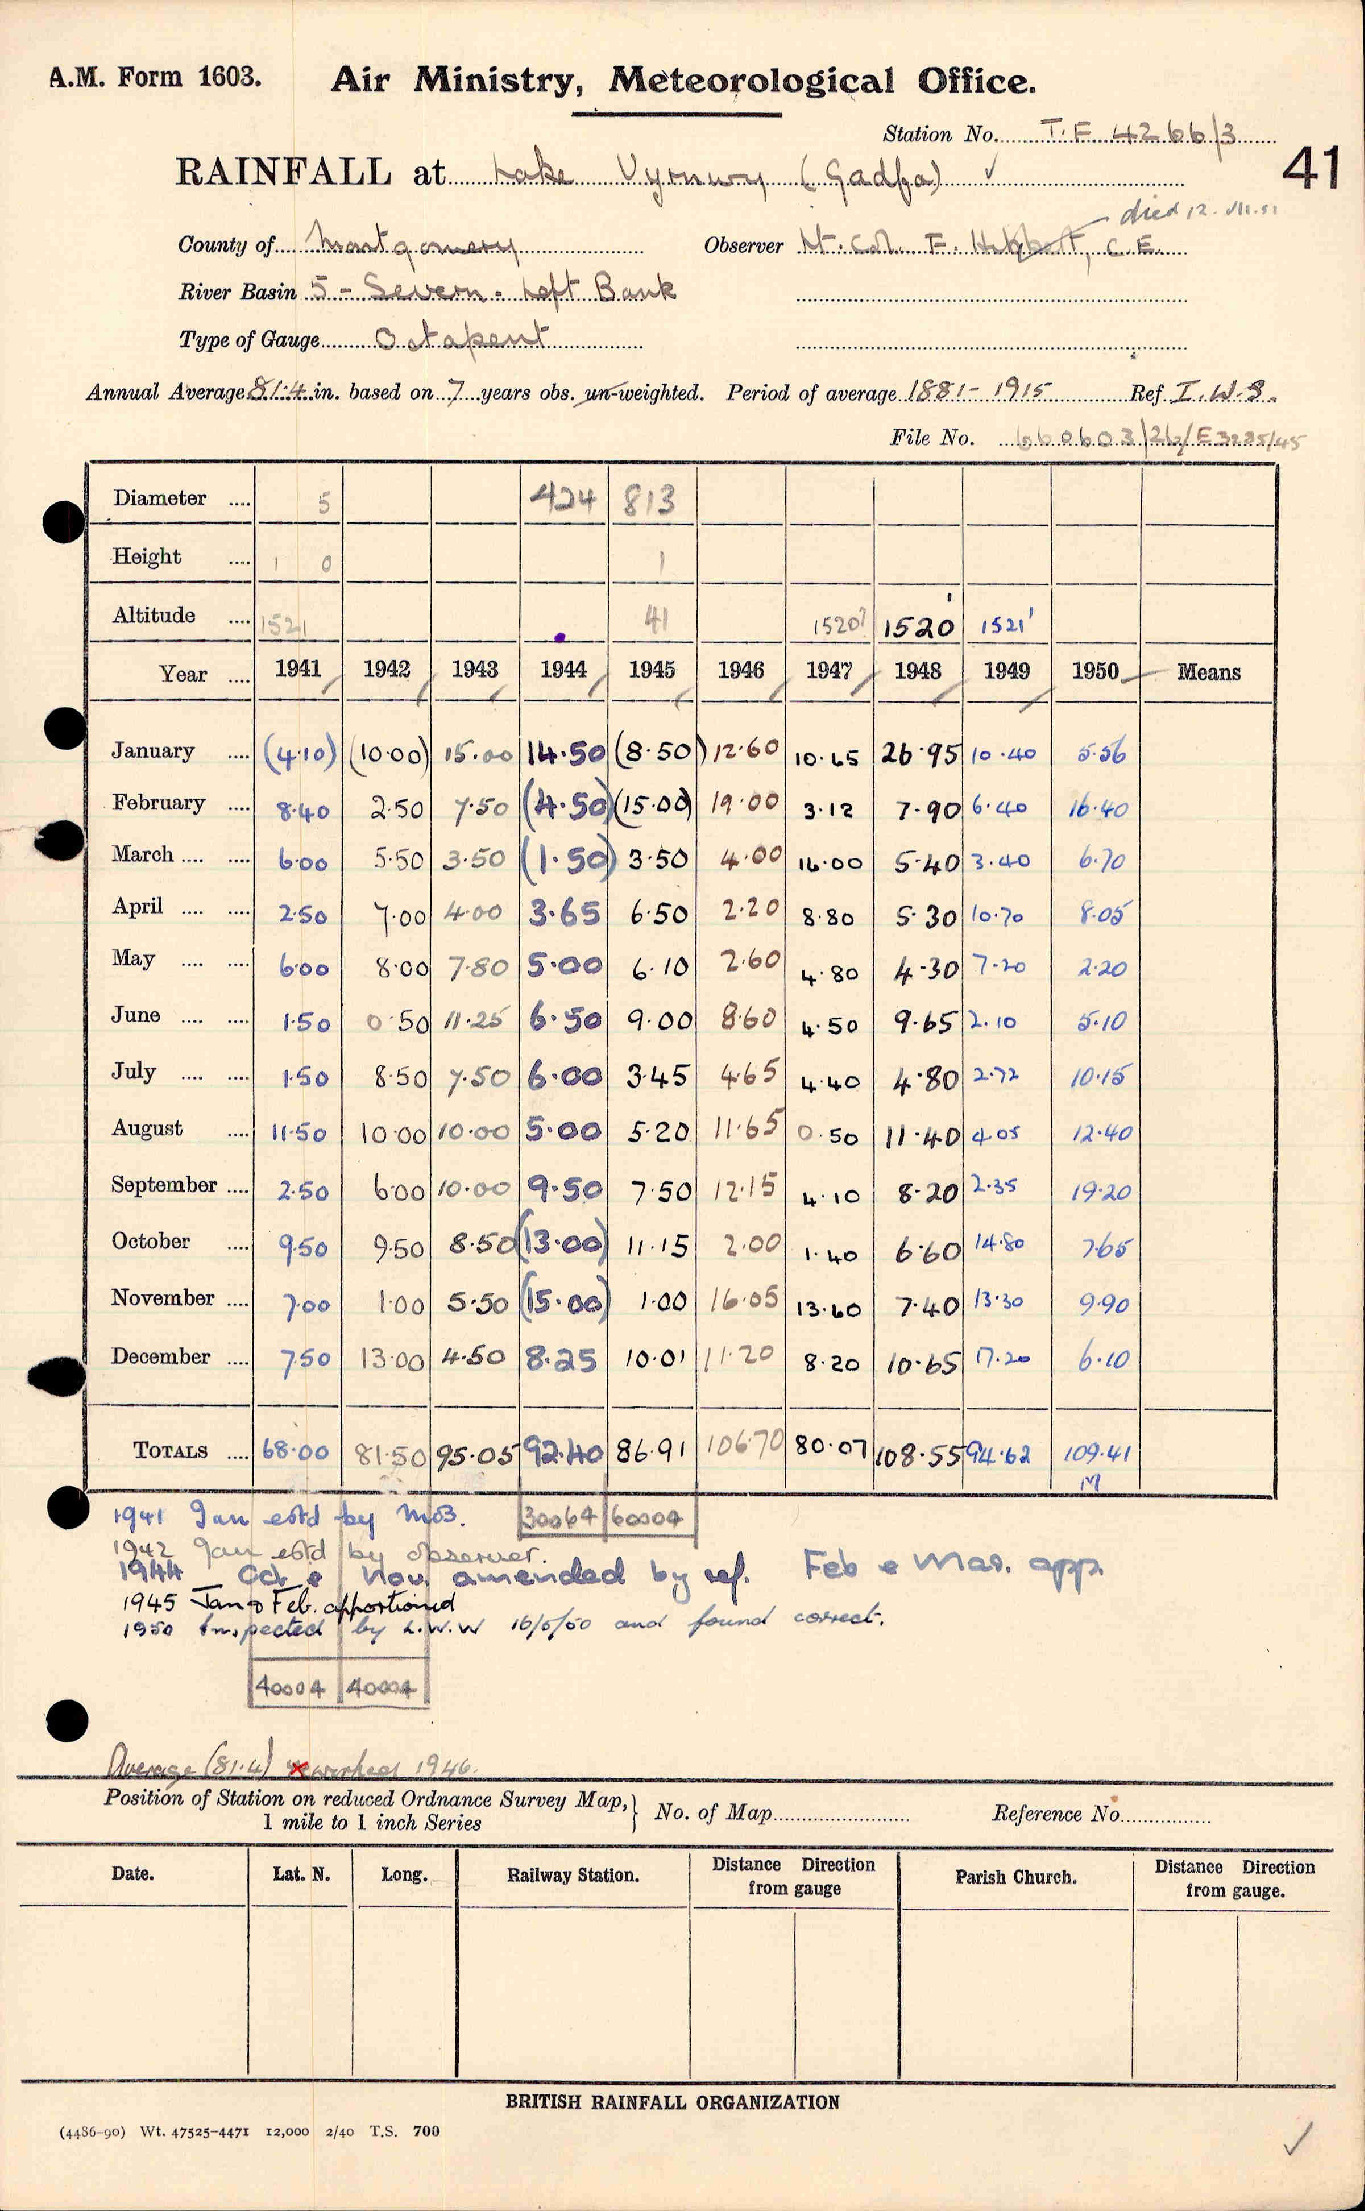 A.M. Form 1603. Air Ministry, Meteorological Office.
Station No. T.E 4266/3
41
RAINFALL at Lake Vyrnwy (Gadfa) ✓
died 12.VII.51
County of Montgomery Observer Lt. Col. F. Hibbert, C.E.
River Basin 5 - Severn. Left Bank
Type of Gauge Octapent
Annual Average 81.4 in. based on 7 years obs. un-weighted. Period of average 1881-1915 Ref. I.W.S.
File No. 660603/26/E3285/45
Diameter .... 5 424 813
Height .... 1 0 1
Altitude .... 1521 41 1520? 1520' 1521'
Year .... 1941 1942 1943 1944 1945 1946 1947 1948 1949 1950 Means
January .... (4.10) (10.00) 15.00 14.50 (8.50) 12.60 10.65 26.95 10.40 5.56
February .... 8.40 2.50 7.50 (4.50) (15.00) 19.00 3.12 7.90 6.40 16.40
March .... .... 6.00 5.50 3.50 (1.50) 3.50 4.00 16.00 5.40 3.40 6.70
April .... .... 2.50 7.00 4.00 3.65 6.50 2.20 8.80 5.30 10.70 8.05
May .... .... 6.00 8.00 7.80 5.00 6.10 2.60 4.80 4.30 7.20 2.20
June .... .... 1.50 0.50 11.25 6.50 9.00 8.60 4.50 9.65 2.10 5.10
July .... .... 1.50 8.50 7.50 6.00 3.45 4.65 4.40 4.80 2.72 10.15
August .... 11.50 10.00 10.00 5.00 5.20 11.65 0.50 11.40 4.05 12.40
September .... 2.50 6.00 10.00 9.50 7.50 12.15 4.10 8.20 2.35 19.20
October .... 9.50 9.50 8.50 (13.00) 11.15 2.00 1.40 6.60 14.80 7.65
November .... 7.00 1.00 5.50 (15.00) 1.00 16.05 13.60 7.40 13.30 9.90
December .... 7.50 13.00 4.50 8.25 10.01 11.20 8.20 10.65 17.20 6.10
TOTALS .... 68.00 81.50 95.05 92.40 86.91 106.70 80.07 108.55 94.62 109.41
M
30064 60004
1941 Jan estd by MOB.
1942 Jan estd by observer.
1944 Oct & Nov. amended by ref. Feb & Mar. app.
1945 Jan & Feb. apportioned
1950 Inspected by L.W.W 16/5/50 and found correct.
40004 40004
Average (81.4) reworked 1946.
Position of Station on reduced Ordnance Survey Map,} No. of Map Reference No.
1 mile to 1 inch Series
Date. Lat. N. Long. Railway Station. Distance Direction from gauge Parish Church. Distance Direction from gauge.
BRITISH RAINFALL ORGANIZATION
(4486-90) Wt. 47525-4471 12,000 2/40 T.S. 700
✓